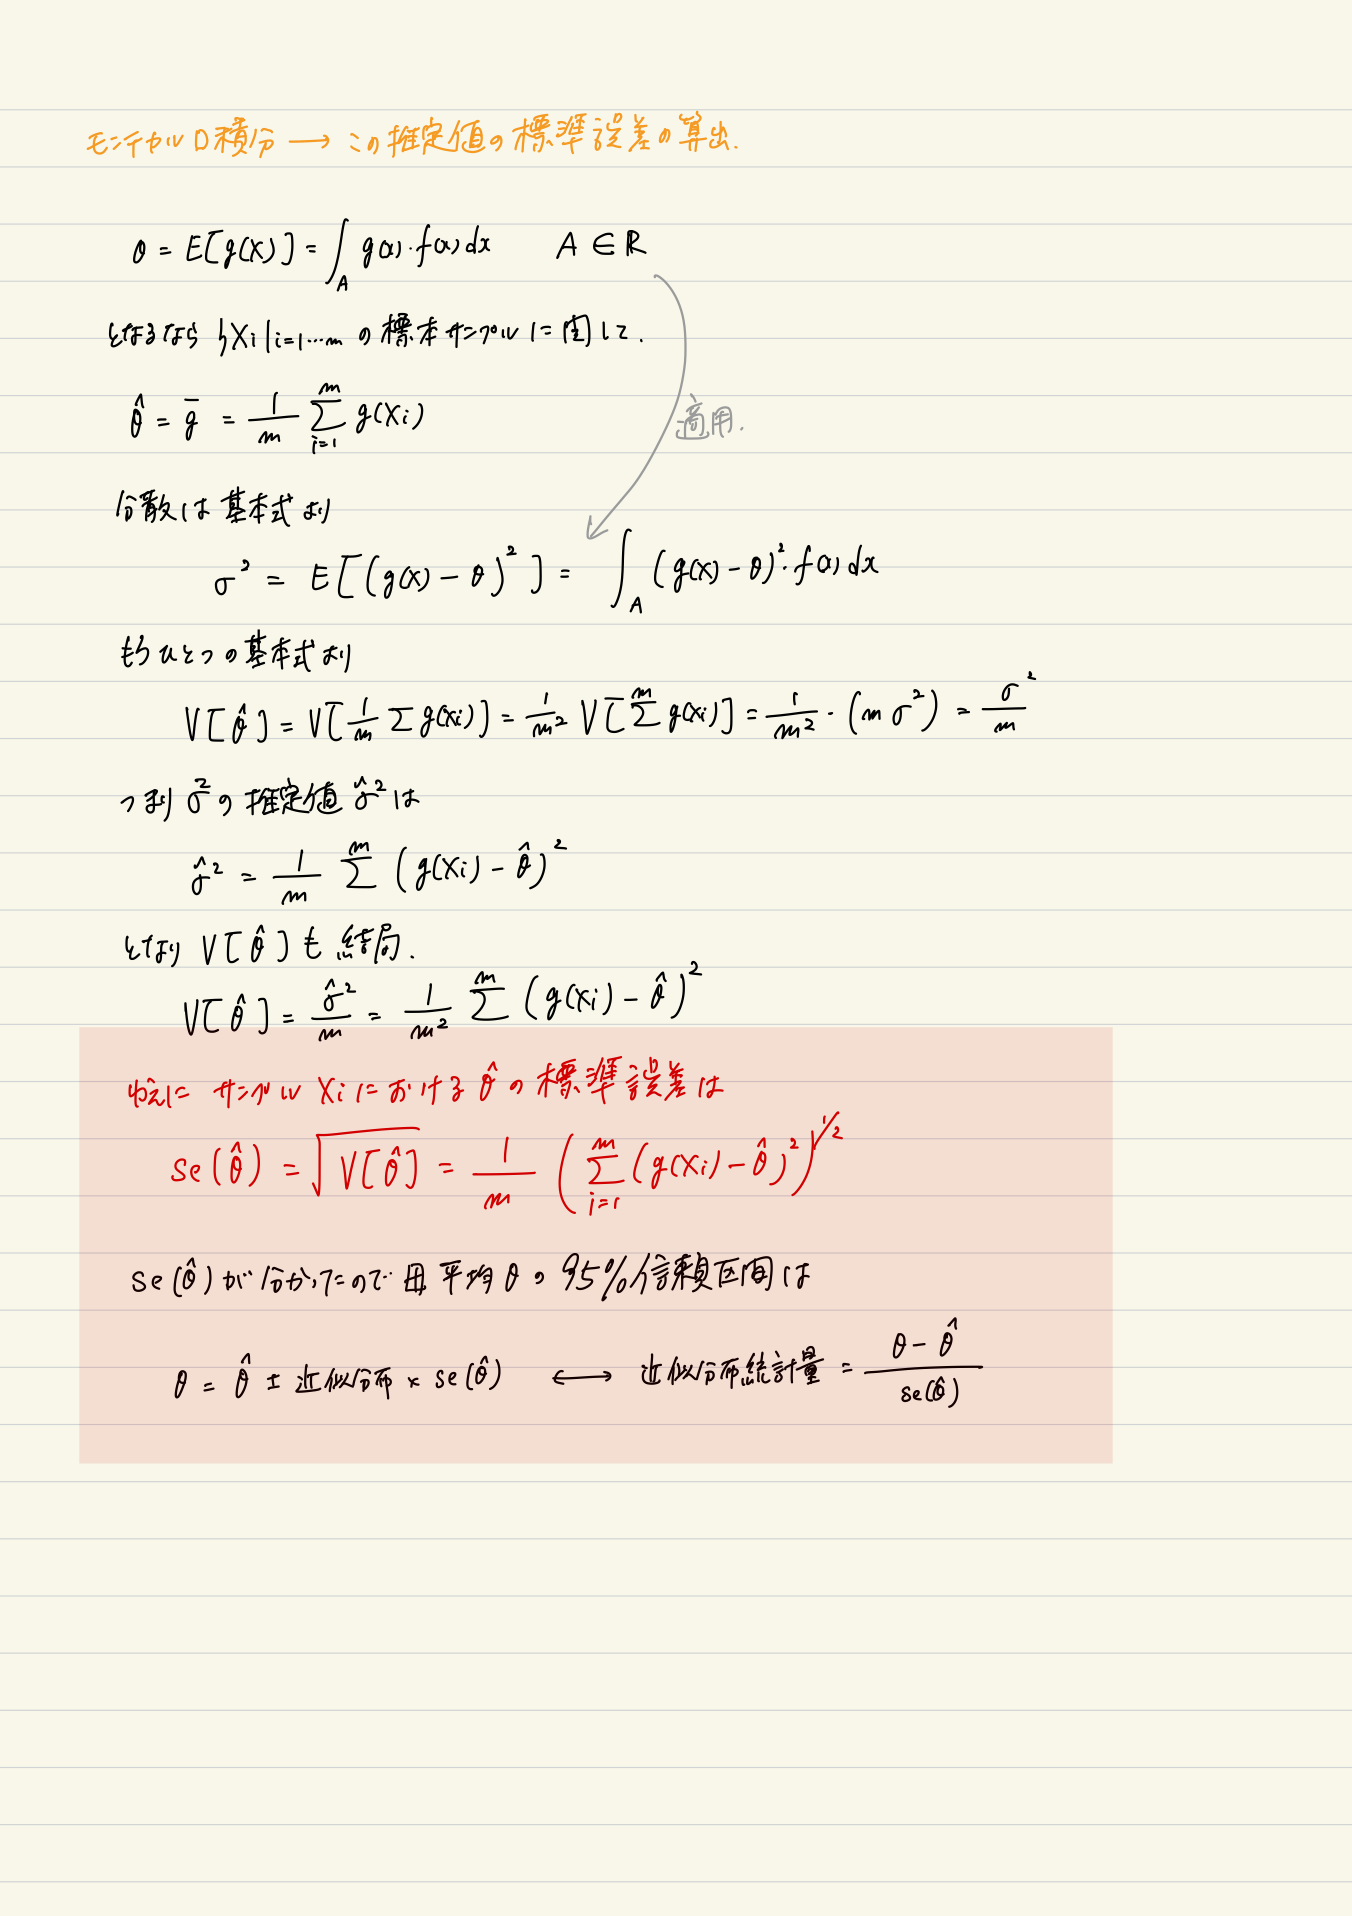 モンテカルロ積分 → この推定値の標準誤差の算出.
θ = E[g(X)] = ∫_A g(x)・f(x)dx A ∈ ℝ
となるなら Xi|i=1…m の標本サンプルに関して.
θ̂ = ḡ = 1/m Σ_{i=1}^{m} g(Xi)
適用.
分散は基本式より
σ² = E[(g(X) − θ)²] = ∫_A (g(X) − θ)²・f(x)dx
もうひとつの基本式より
V[θ̂] = V[1/m Σ g(Xi)] = 1/m² V[Σ^m g(Xi)] = 1/m² ・ (m σ²) = σ²/m
つまり σ² の推定値 σ̂² は
σ̂² = 1/m Σ^m (g(Xi) − θ̂)²
となり V[θ̂] も結局.
V[θ̂] = σ̂²/m = 1/m² Σ^m (g(Xi) − θ̂)²
ゆえに サンプル Xi における θ̂ の標準誤差は
se(θ̂) = √V[θ̂] = 1/m (Σ_{i=1}^{m} (g(Xi) − θ̂)²)^{1/2}
se(θ̂) が分かったので 母平均 θ の 95%信頼区間は
θ = θ̂ ± 近似分布 × se(θ̂) ⟷ 近似分布統計量 = (θ − θ̂)/se(θ̂)